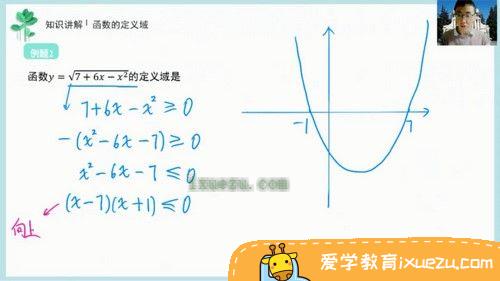 知识讲解 | 函数的定义域
例题2
函数y = √(7 + 6x − x²)的定义域是
7+6x−x²≥0
−(x²−6x−7)≥0
x²−6x−7≤0
(x−7)(x+1)≤0
向上
−1
7
ixuezu.com
爱学教育ixuezu.com